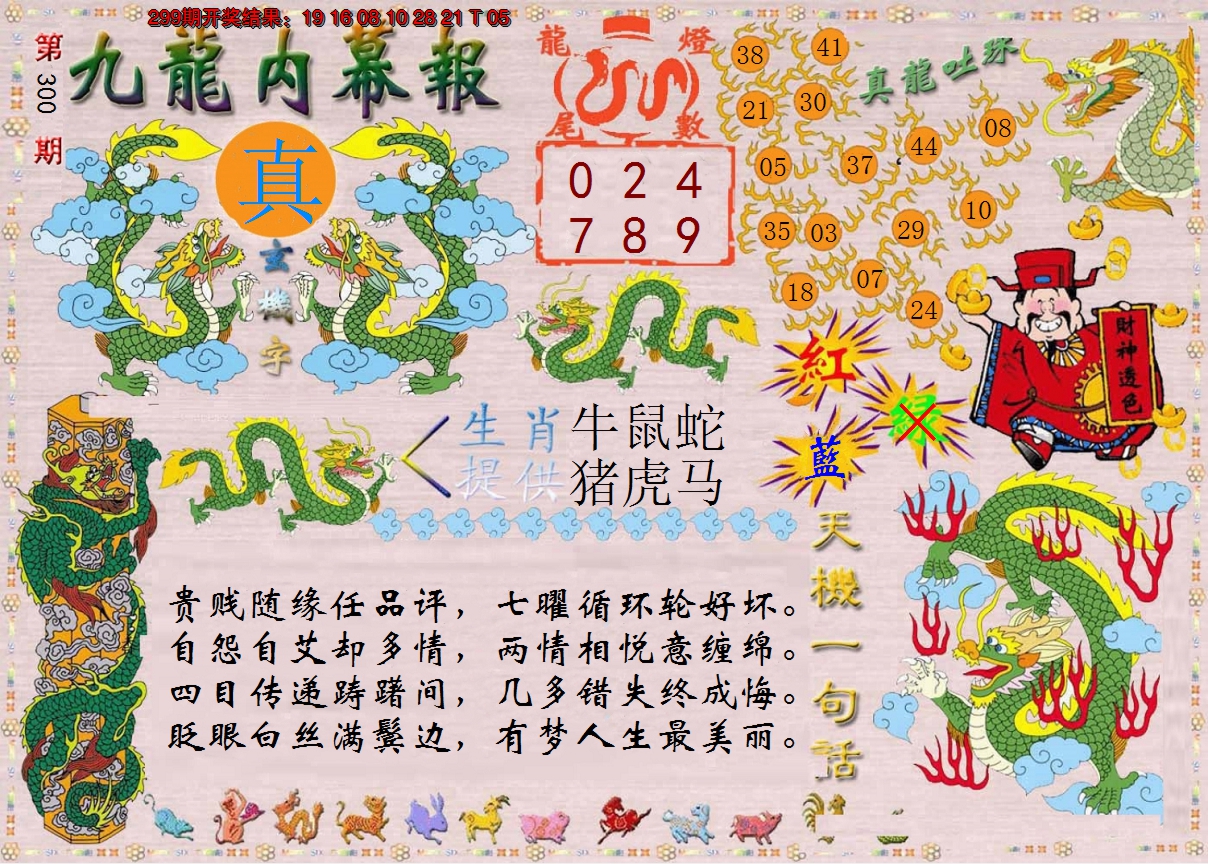 299期开奖结果：19 16 08 10 28 21 T 05
第300期
九龍内幕報
真
玄機字
龍燈
尾數
0 2 4
7 8 9
真龍吐珠
38 41
21 30
05 37 44 08
35 03 29 10
18 07 24
財神透色
紅
绿
藍
生肖 牛鼠蛇
提供 猪虎马
天機一句話
贵贱随缘任品评，七曜循环轮好坏。
自怨自艾却多情，两情相悦意缠绵。
四目传递踌躇间，几多错失终成悔。
眨眼白丝满鬓边，有梦人生最美丽。